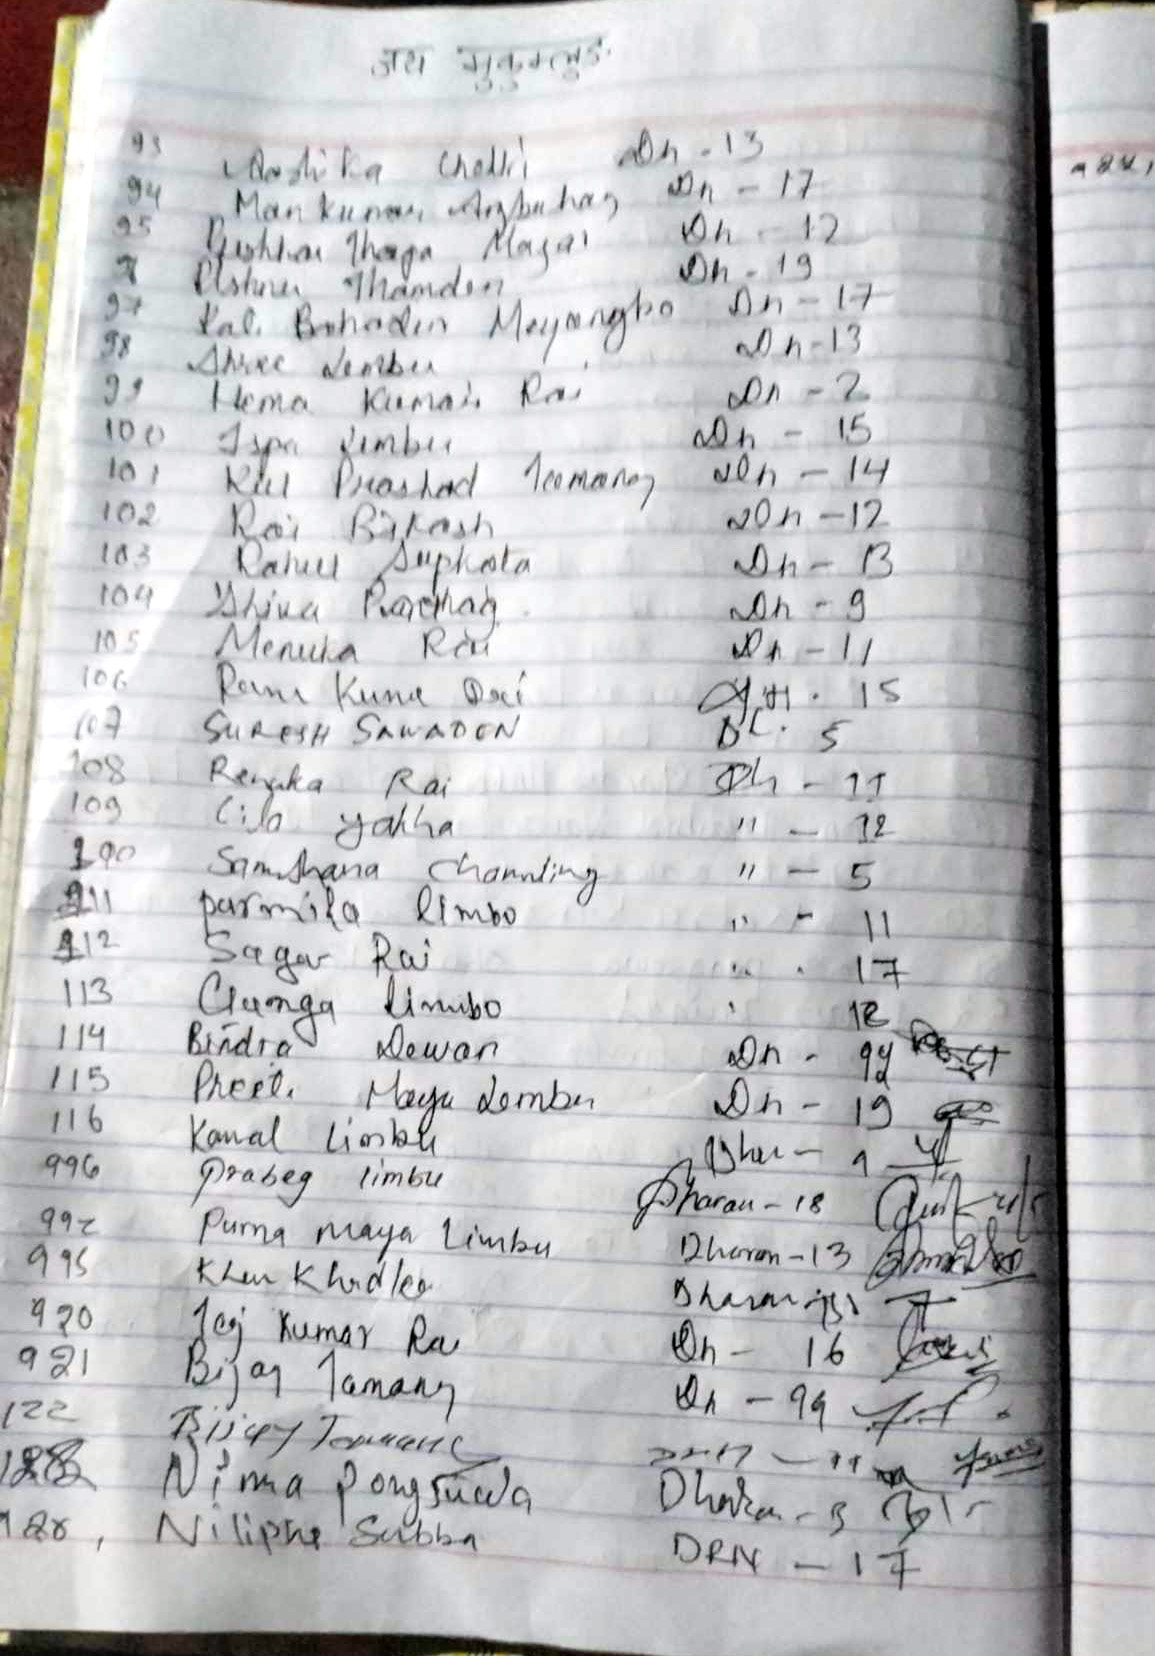 जय मुकुमलुङ
93 Aashika Chedri Dn - 13
94 Man Kumar Angbuhang Dn - 17
95 Pushkar Thapa Magar Dn - 12
Thamden Dn - 19
97 Kal. Bahadur Meyangbo Dn - 17
98 Shree Lembu Dn - 13
99 Hema Kumari Rai Dn - 2
100 Ispa Limbu Dn - 15
101 Kul Prashad Tamang Dn - 14
102 Rai Bikash Dn - 12
103 Rahul Supkota Dn - 13
104 Shiva Pardhan Dn - 9
105 Menuka Rai Dn - 11
106 Ram Kuma Rai 15
107 SURESH SAWADEN 5
108 Renuka Rai Dh - 11
109 Lila yakha " - 12
Samjhana Chamling " - 5
parmila limbo " - 11
112 Sagar Rai " . 17
113 Gamga limbo 12
114 Bindra Dewan Dn -
115 Preeti Maya Lembu Dn - 19
116 Kamal Limbu
996 Prabeg limbu Dharan - 18
Purna maya Limbu Dharan - 13
995
920 Tej Kumar Rai Dn - 16
921 Bijay Tamang Dn - 99
122 Bijay Tamang
Nima Pongsuwa
Subba DRN - 17